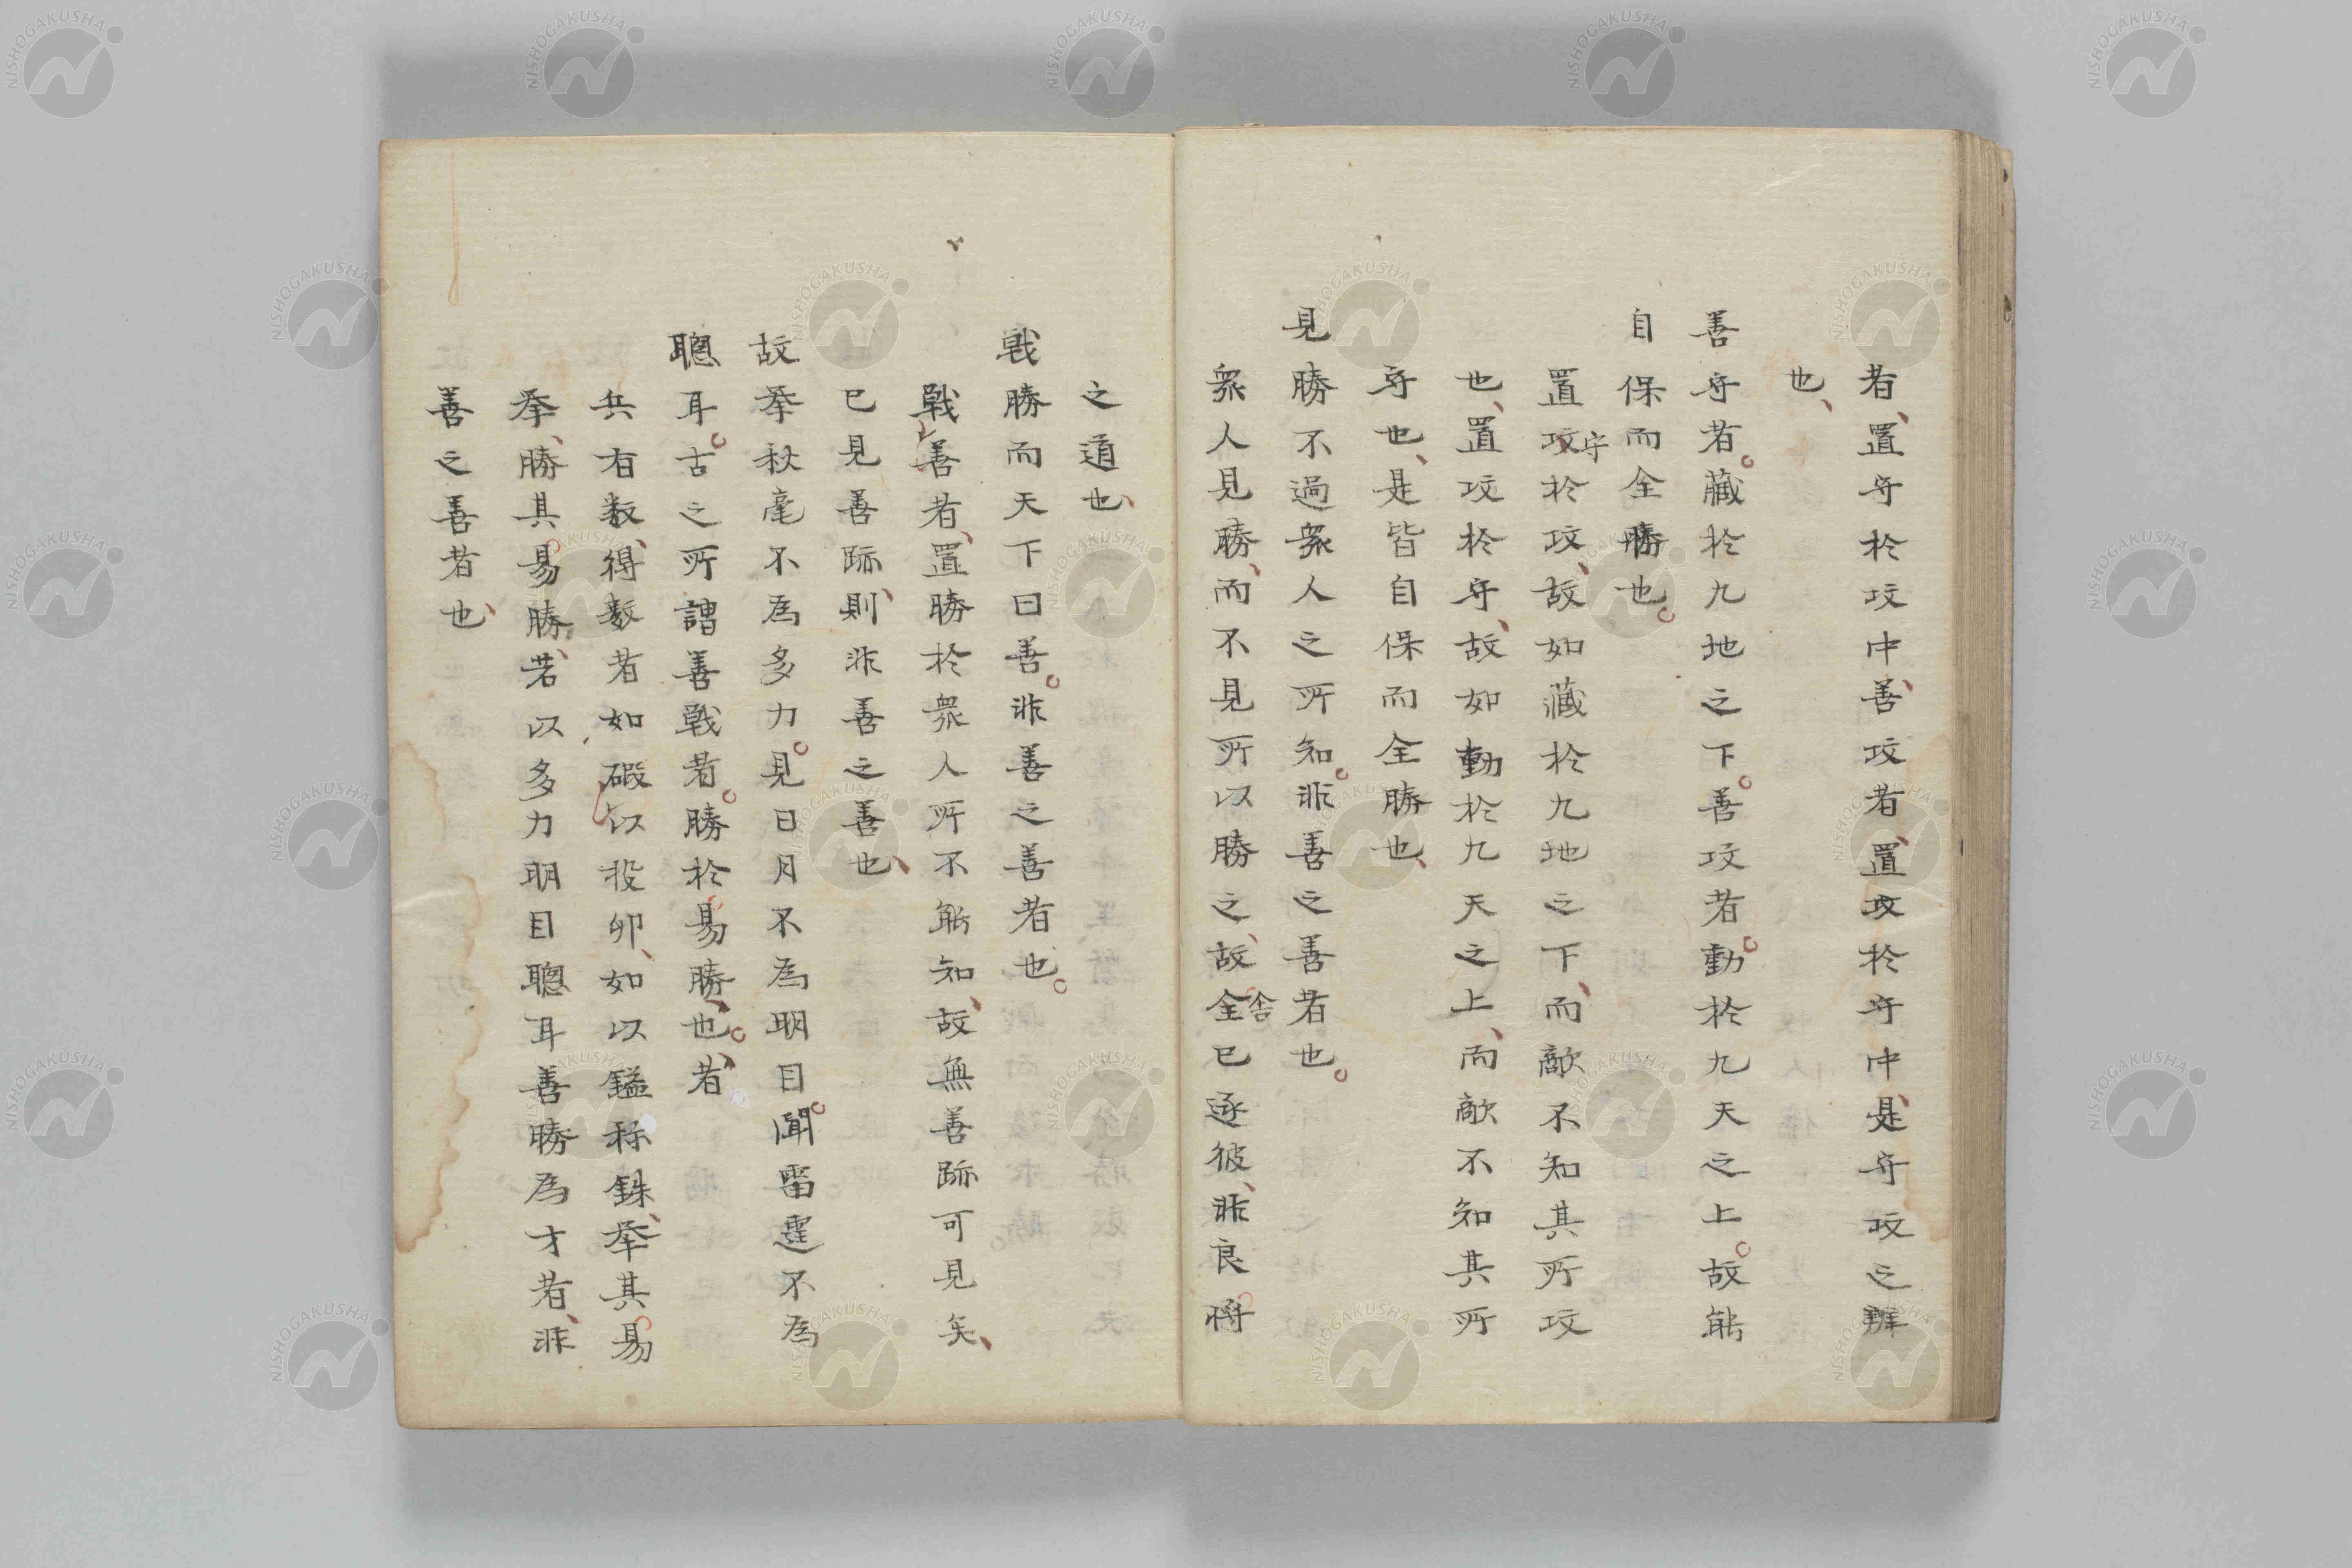 者、置守於攻中、善攻者、置攻於守中、是守攻之辨
也、
善守者。藏於九地之下。善攻者。動於九天之上。故能
自保而全勝也。
置攻守於攻、故如藏於九地之下、而敵不知其所攻
也、置攻於守、故如動於九天之上、而敵不知其所
守也、是皆自保而全勝也、
見勝不過衆人之所知。非善之善者也。
衆人見勝、而不見所以勝之、故全舍已逐彼、非良將
之道也、
戰勝而天下曰善。非善之善者也。
戰善者、置勝於衆人所不能知、故無善跡可見矣、
已見善跡、則非善之善也、
故举秋毫不為多力。見日月不為明目。聞雷霆不為
聰耳。古之所謂善戰者。勝於易勝也。者、
兵有数、得数者如碬以投卵、如以鎰称銖、举其易
举、勝其易勝、若以多力明目聰耳善勝為才者、非
善之善者也、
NISHOGAKUSHA